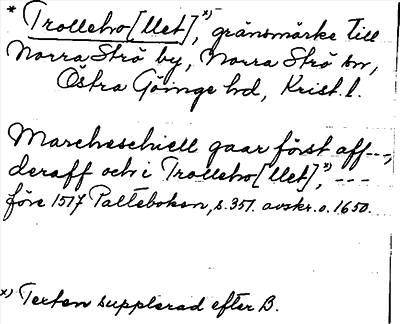 * Trolleho[llet],x) gränsmärke till
Norra Strö by, Norra Strö sn,
Östra Göinge hd, Krist. l.
Marcheschiell gaar först aff---,
deraff och i Trolleho[llet],x) ---
före 1517 Palteboken, s. 351. avskr. o. 1650.
x) Texten supplerad efter B.